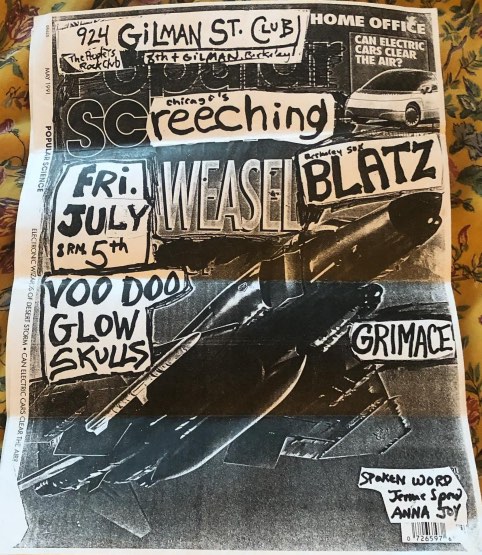 924 GILMAN ST. CLUB
The People's
Rock Club
8th + GILMAN, Berkeley
HOME OFFICE
CAN ELECTRIC
CARS CLEAR
THE AIR?
Popular
Chicago's
SCreeching
WEASEL
BLATZ
FRI.
JULY
8 P.M. 5th
VOO DOO
GLOW
SKULLS
GRIMACE
SPOKEN WORD
ANNA JOY
0 726597
MAY 1991
POPULAR SCIENCE
ELECTRONIC WIZARDS OF DESERT STORM • CAN ELECTRIC CARS CLEAR THE AIR?